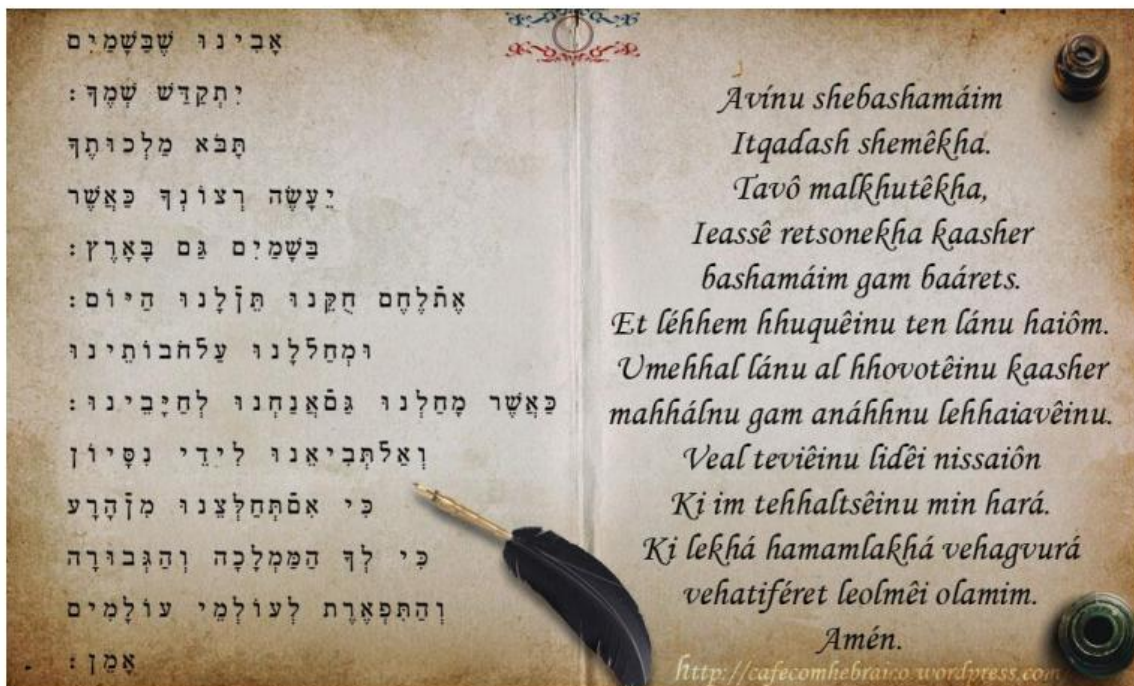 אָבִינוּ שֶׁבַּשָּׁמַיִם
יִתְקַדַּשׁ שְׁמֶךָ׃
תָּבֹא מַלְכוּתֶךָ
יֵעָשֶׂה רְצוֹנְךָ כַּאֲשֶׁר
בַּשָּׁמַיִם גַּם בָּאָרֶץ׃
אֶת־לֶחֶם חֻקֵּנוּ תֵּן־לָנוּ הַיּוֹם׃
וּמְחַל־לָנוּ עַל־חֹבוֹתֵינוּ
כַּאֲשֶׁר מָחַלְנוּ גַּם־אֲנַחְנוּ לְחַיָּבֵינוּ׃
וְאַל־תְּבִיאֵנוּ לִידֵי נִסָּיוֹן
כִּי אִם־תְּחַלְּצֵנוּ מִן־הָרָע
כִּי לְךָ הַמַּמְלָכָה וְהַגְּבוּרָה
וְהַתִּפְאֶרֶת לְעוֹלְמֵי עוֹלָמִים
אָמֵן׃
Avínu shebashamáim
Itqadash shemêkha.
Tavô malkhutêkha,
Ieassê retsonekha kaasher
bashamáim gam baárets.
Et léhhem hhuquêinu ten lánu haiôm.
Umehhal lánu al hhovotêinu kaasher
mahhálnu gam anáhhnu lehhaiavêinu.
Veal teviêinu lidêi nissaiôn
Ki im tehhaltsêinu min hará.
Ki lekhá hamamlakhá vehagvurá
vehatiféret leolmêi olamim.
Amén.
http://cafecomhebraico.wordpress.com